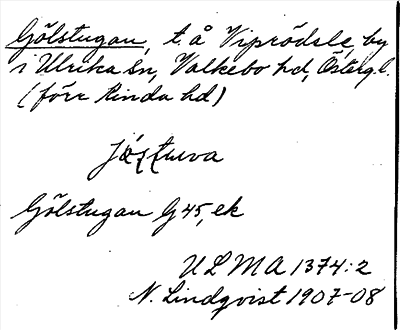 Gölstugan, t. å Viprödsle, by
i Ulrika sn, Valkebo hd, Österg. l.
(förr Kinda hd)
Gölstugan G 45, ek
ULMA 1374:2
N. Lindqvist 1907-08